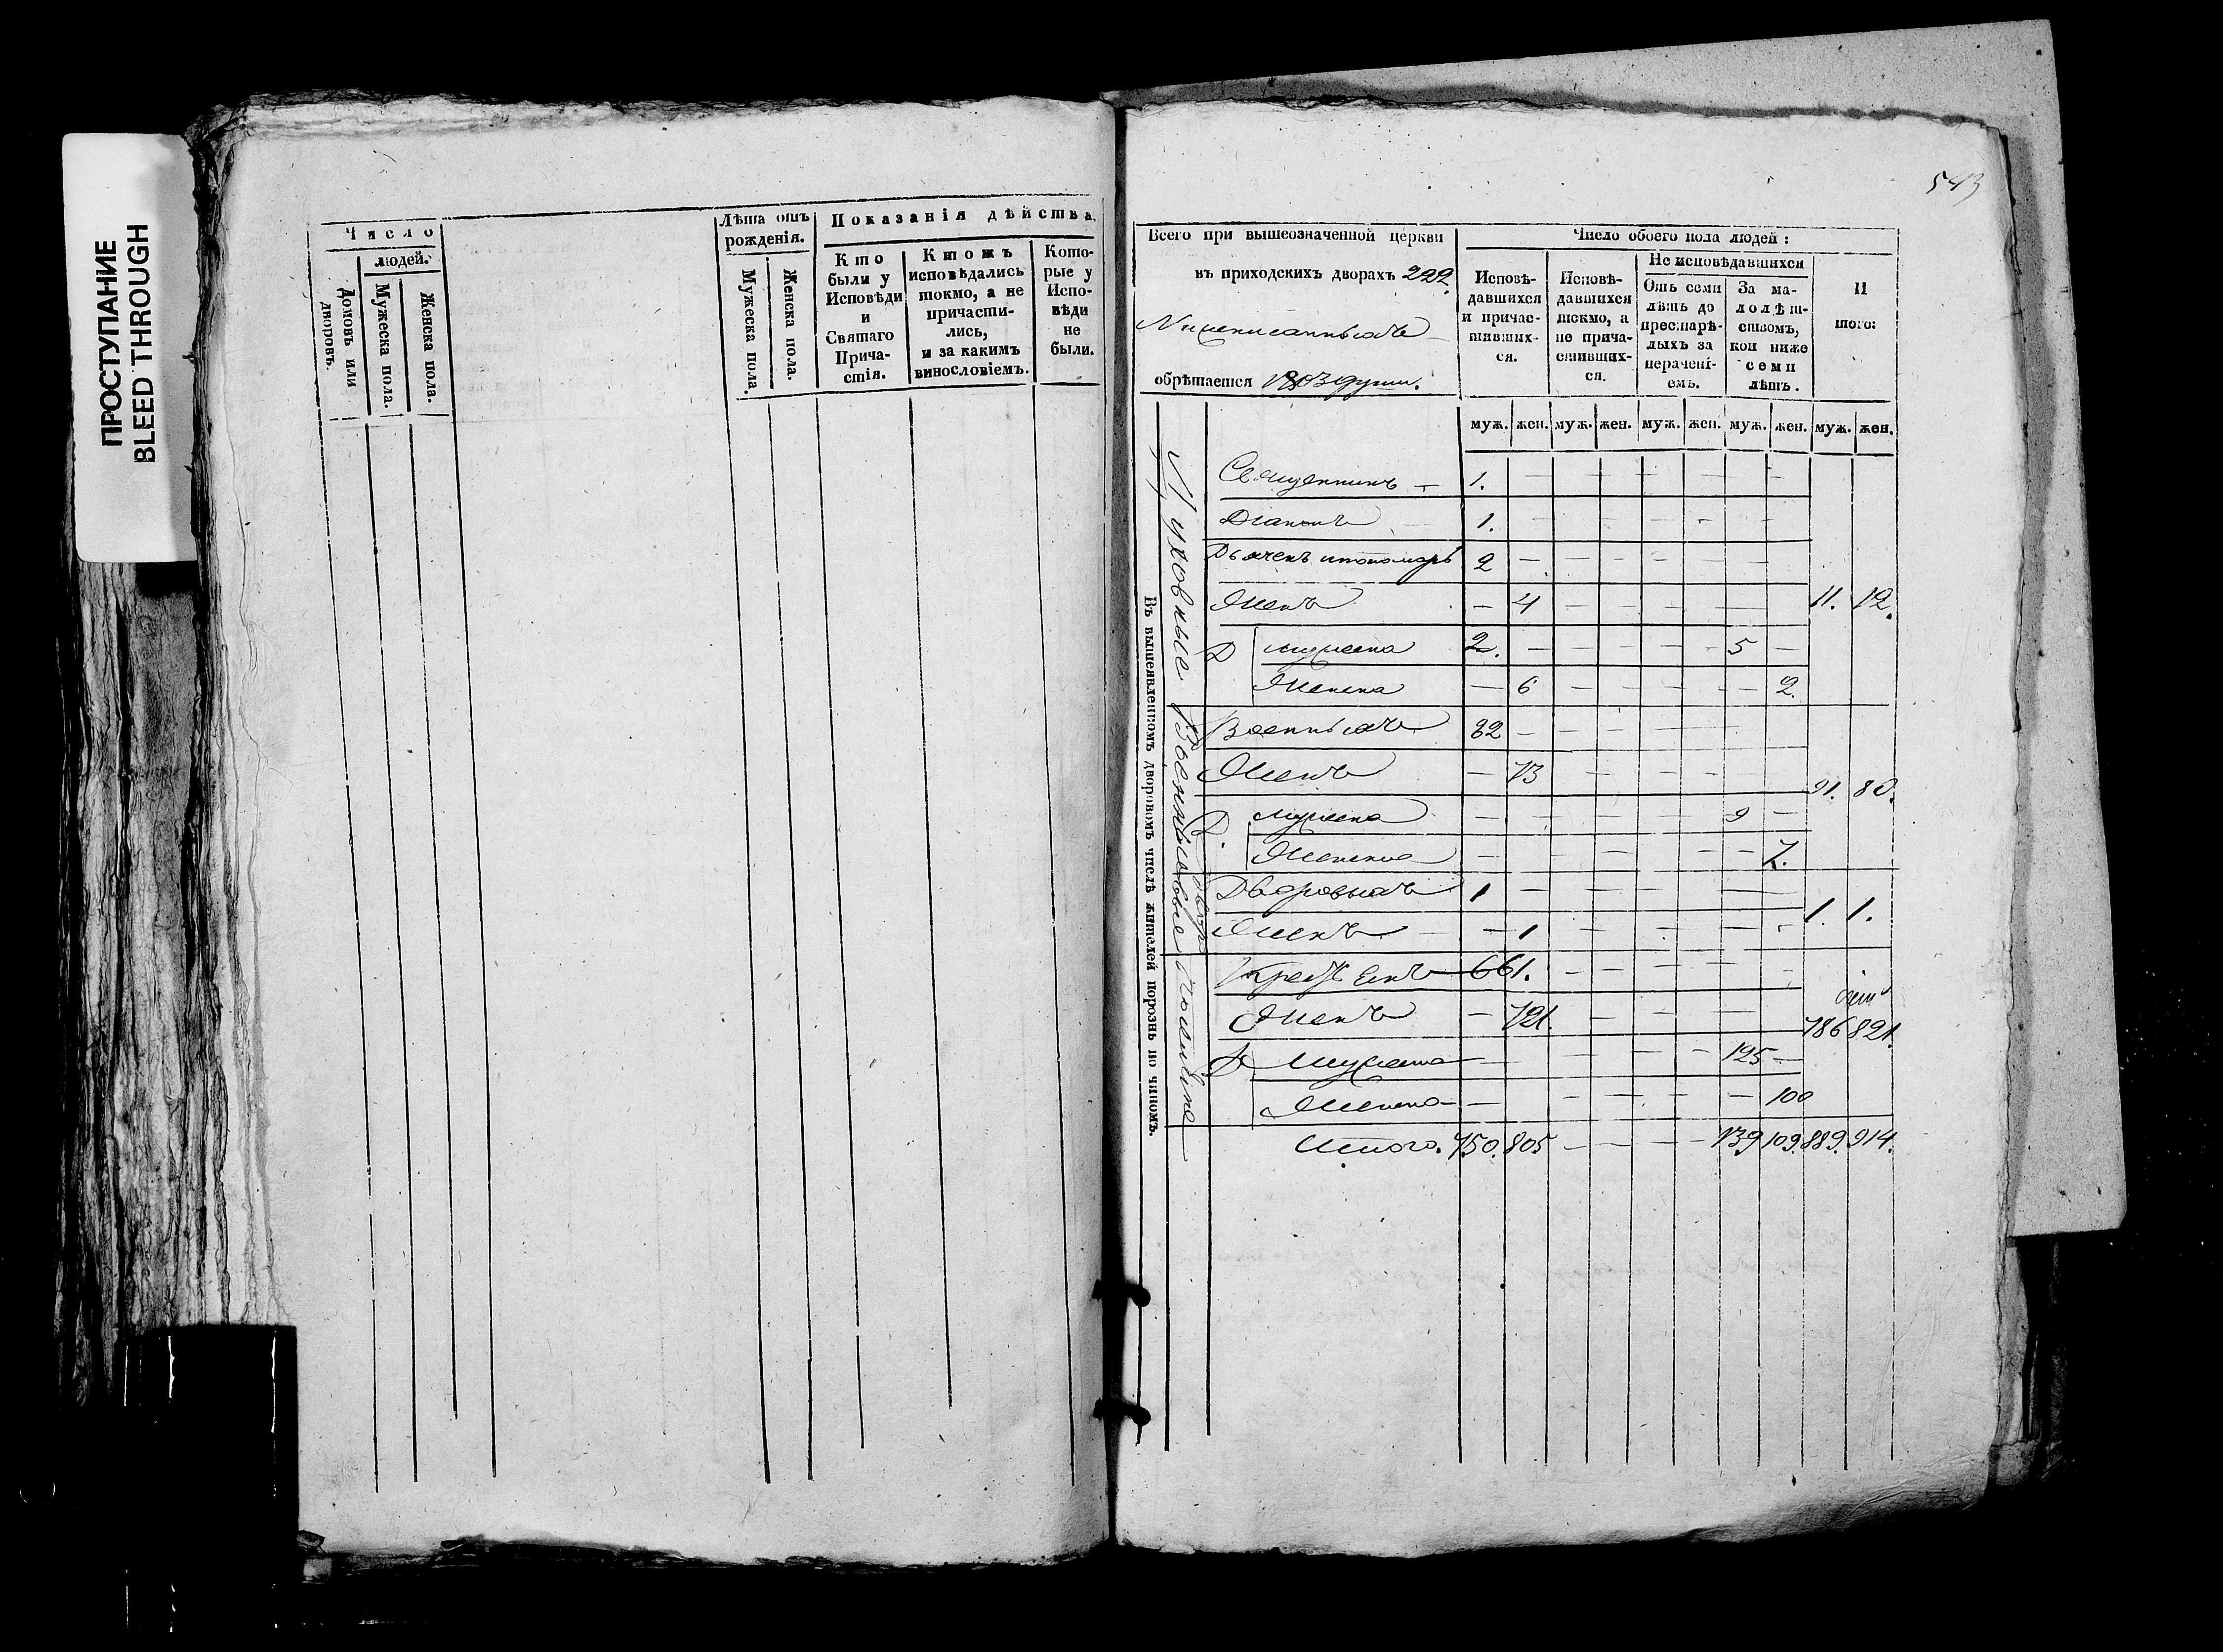 ПРОСТУПАНИЕ
BLEED THROUGH
Число
людей.
Домовъ или дворовъ.
Мужеска пола.
Женска пола.
Лѣта отъ рожденія.
Мужеска пола.
Женска пола.
Показанія дѣйства.
Кто были у Исповѣди и Святаго Причастія.
Ктожъ исповѣдались токмо, а не причастились, и за какимъ винословіемъ.
Которые у Исповѣди не были.
543
Всего при вышеозначенной церкви
въ приходскихъ дворахъ 222.
обрѣтается 1803 души.
Число обоего пола людей:
Исповѣдавшихся и причастившихся.
Исповѣдавшихся токмо, а не причастившихся.
Не исповѣдавшихся
Отъ семи лѣтъ до престарѣлыхъ за нерачені-емъ.
За малолѣтствомъ, кои ниже семи лѣтъ.
Итого:
муж. жен. муж. жен. муж. жен. муж. жен. муж. жен.
Въ вышеявленномъ дворовомъ числѣ жителей порознь по чиномъ.
Духовные
Священникъ — 1. — — — — — — —
Діаконъ 1. — — — — — — —
Дьячекъ и пономарь 2 — — — — — — —
Женъ — 4 — — — — — — 11. 12.
Д мужеска 2. — — — — — 5 —
Женска — 6 — — — — — 2.
Военные
Военныхъ 82 — — — — — — —
Женъ — 73 — — — — — — 91. 80.
Д. мужеска — — — — — — 9 —
Женска — — — — — — — 7.
Дворовыхъ 1 — — — — — — —
Женъ — 1 — — — — — — 1. 1.
661. — — — — — — —
Женъ — 721. — — — — — — 786 821.
Д мужеска — — — — — — 125 —
Женска — — — — — — — 100
Итого. 750. 805 — — — — 139 109. 889. 914.